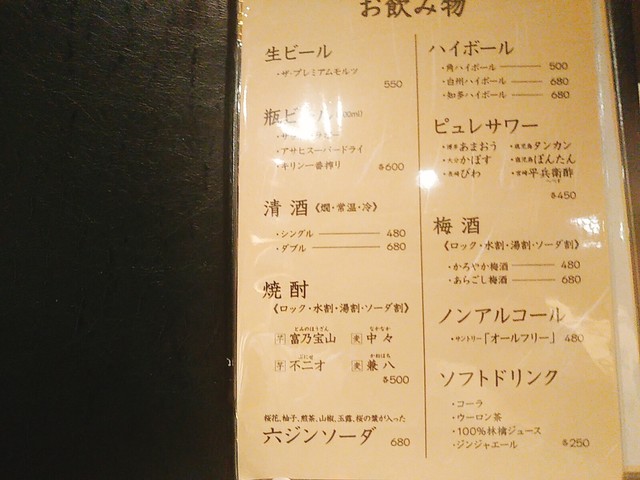 お飲み物
生ビール
・ザ・プレミアムモルツ
550
瓶ビール
・アサヒスーパードライ
・キリン一番搾り 各600
清酒《燗・常温・冷》
・シングル 480
・ダブル 680
焼酎
《ロック・水割・湯割・ソーダ割》
とみのほうざん なかなか
芋 富乃宝山 麦 中々
ぶにせ かねはち
芋 不二才 麦 兼八
各500
桜花、柚子、煎茶、山椒、玉露、桜の葉が入った
六ジンソーダ 680
ハイボール
・角ハイボール 500
・白州ハイボール 680
・知多ハイボール 680
ピュレサワー
・博多あまおう ・鹿児島タンカン
・大分かぼす ・鹿児島ぽんたん
・長崎びわ ・宮崎平兵衛酢
へべす
各450
梅酒
《ロック・水割・湯割・ソーダ割》
・かろやか梅酒 480
・あらごし梅酒 680
ノンアルコール
・サントリー「オールフリー」 480
ソフトドリンク
・コーラ
・ウーロン茶
・100%林檎ジュース
・ジンジャエール 各250